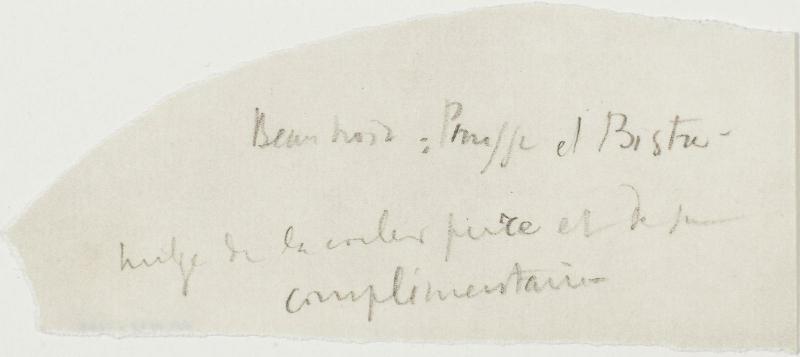 Beau noir : Prusse et Bistre -
mélge de la couleur pure et de sa
complimentaire